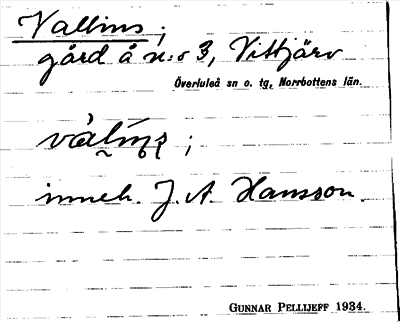 Vallins;
gård å n:o 3, Vittjärv
Överluleå sn o. tg, Norrbottens län.
;
inneh. J. A. Hansson.
GUNNAR PELLIJEFF 1934.